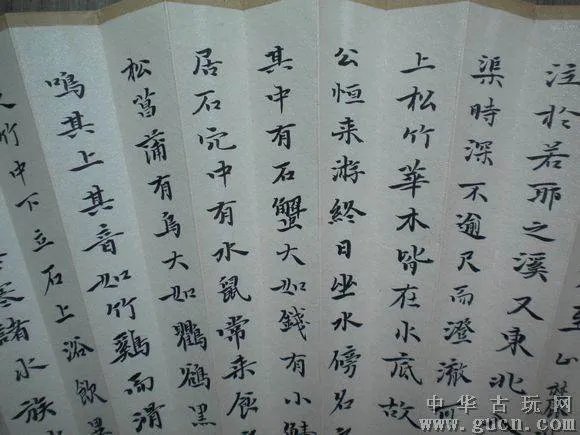 注於若耶之溪又東北
渠時深不逾尺而澄澈可
上松竹華木皆在水底故
公恒来游終日坐水傍名
其中有石蟹大如錢有小
居石穴中有水鼠常来食
松菖蒲有鳥大如鸜鵒黑
鳴其上其音如竹雞而滑
竹中下立石上浴飲
諸水族
中华古玩网
www.gucn.com